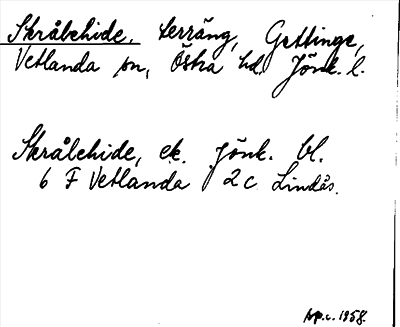 Skråbehide, terräng, Gettinge,
Vetlanda sn, Östra hd. Jönk. l.
Skrålehide, ek. Jönk. bl.
6 F Vetlanda 2 c Lindås.
1958.